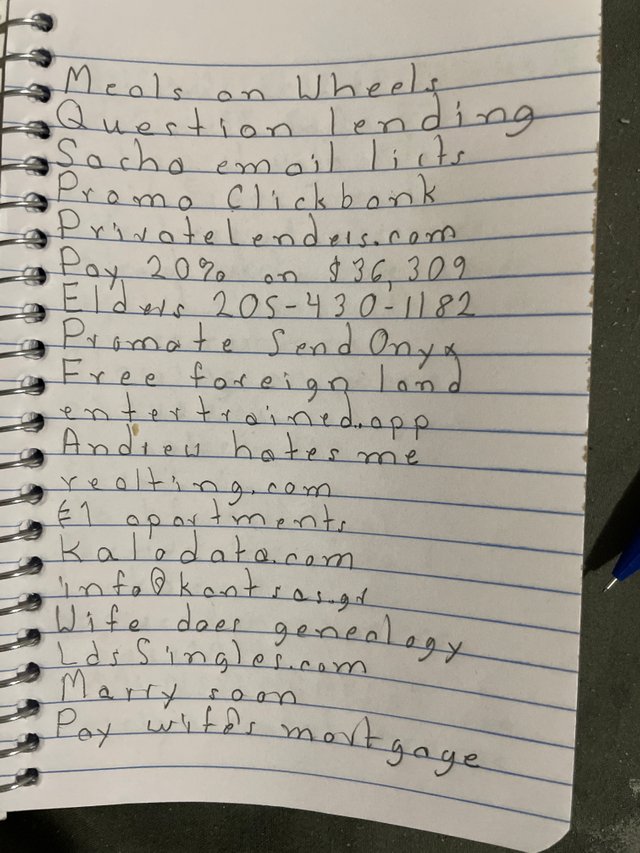 Meals on Wheels
Question lending
Sacha email licts
Promo Clickbank
PrivateLenders.com
Pay 20% on $36,309
Elders 205-430-1182
Promote SendOnyx
Free foreign land
entertrained.app
Andrew hates me
realting.com
€1 apartments
Kalodata.com
info@kantsas.gr
Wife does genealogy
LdsSingles.com
Marry soon
Pay wif's mortgage